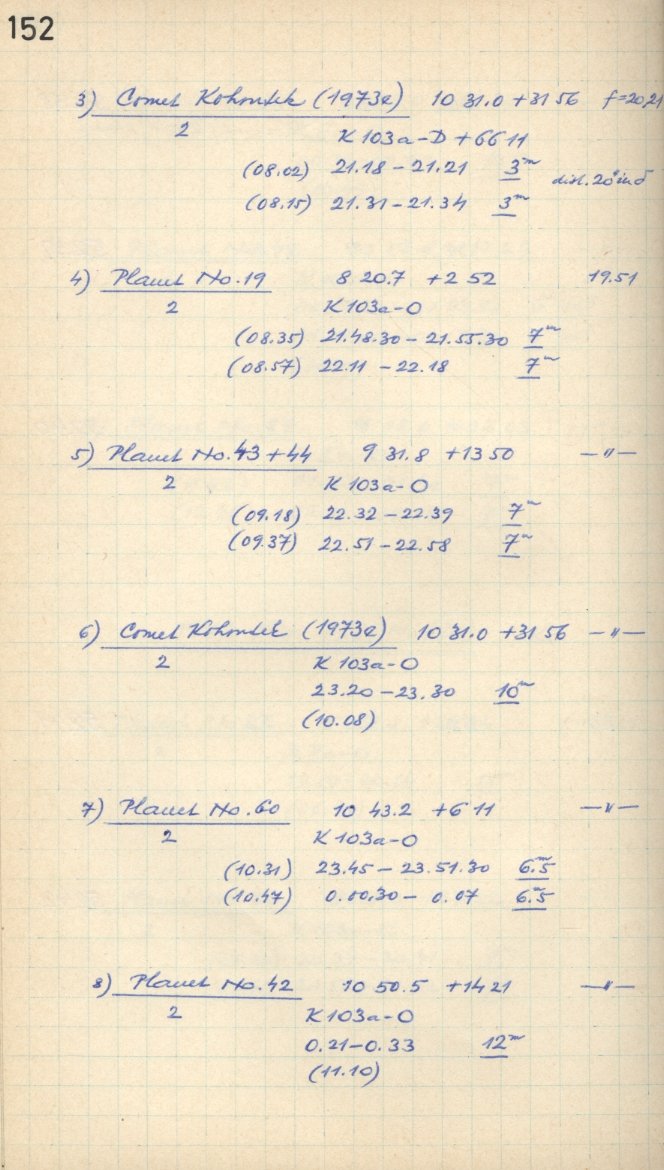 152
3) Comet Kohoutek (1973e) 10 31.0 +31 56 f=20,21
2 K 103a-D + GG 11
(08.02) 21.18 - 21.21 3m
dist. 20° in δ
(08.15) 21.31 - 21.34 3m
4) Planet No. 19 8 20.7 +2 52 19.51
2 K 103a-O
(08.35) 21.48.30 - 21.55.30 7m
(08.57) 22.11 - 22.18 7m
5) Planet No. 43 + 44 9 31.8 +13 50 — " —
2 K 103a-O
(09.18) 22.32 - 22.39 7m
(09.37) 22.51 - 22.58 7m
6) Comet Kohoutek (1973e) 10 31.0 +31 56 — " —
2 K 103a-O
23.20 - 23.30 10m
(10.08)
7) Planet No. 60 10 43.2 +6 11 — " —
2 K 103a-O
(10.31) 23.45 - 23.51.30 6.m5
(10.47) 0.00.30 - 0.07 6.m5
8) Planet No. 42 10 50.5 +14 21 — " —
2 K 103a-O
0.21 - 0.33 12m
(11.10)